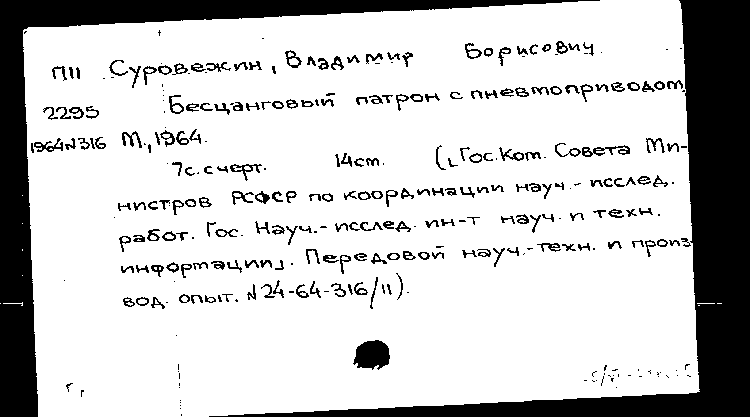 П11 Суровежин, Владимир Борисович
2295 Бесцанговый патрон с пневмоприводом
1964№316 М., 1964.
7с. с черт. 14см. (⌊Гос. Ком. Совета Ми-
нистров РСФСР по координации науч.- исслед.
работ. Гос. Науч.- исслед. ин-т науч. и техн.
информации⌋. Передовой науч.-техн. и произ-
вод. опыт. №24-64-316/11).